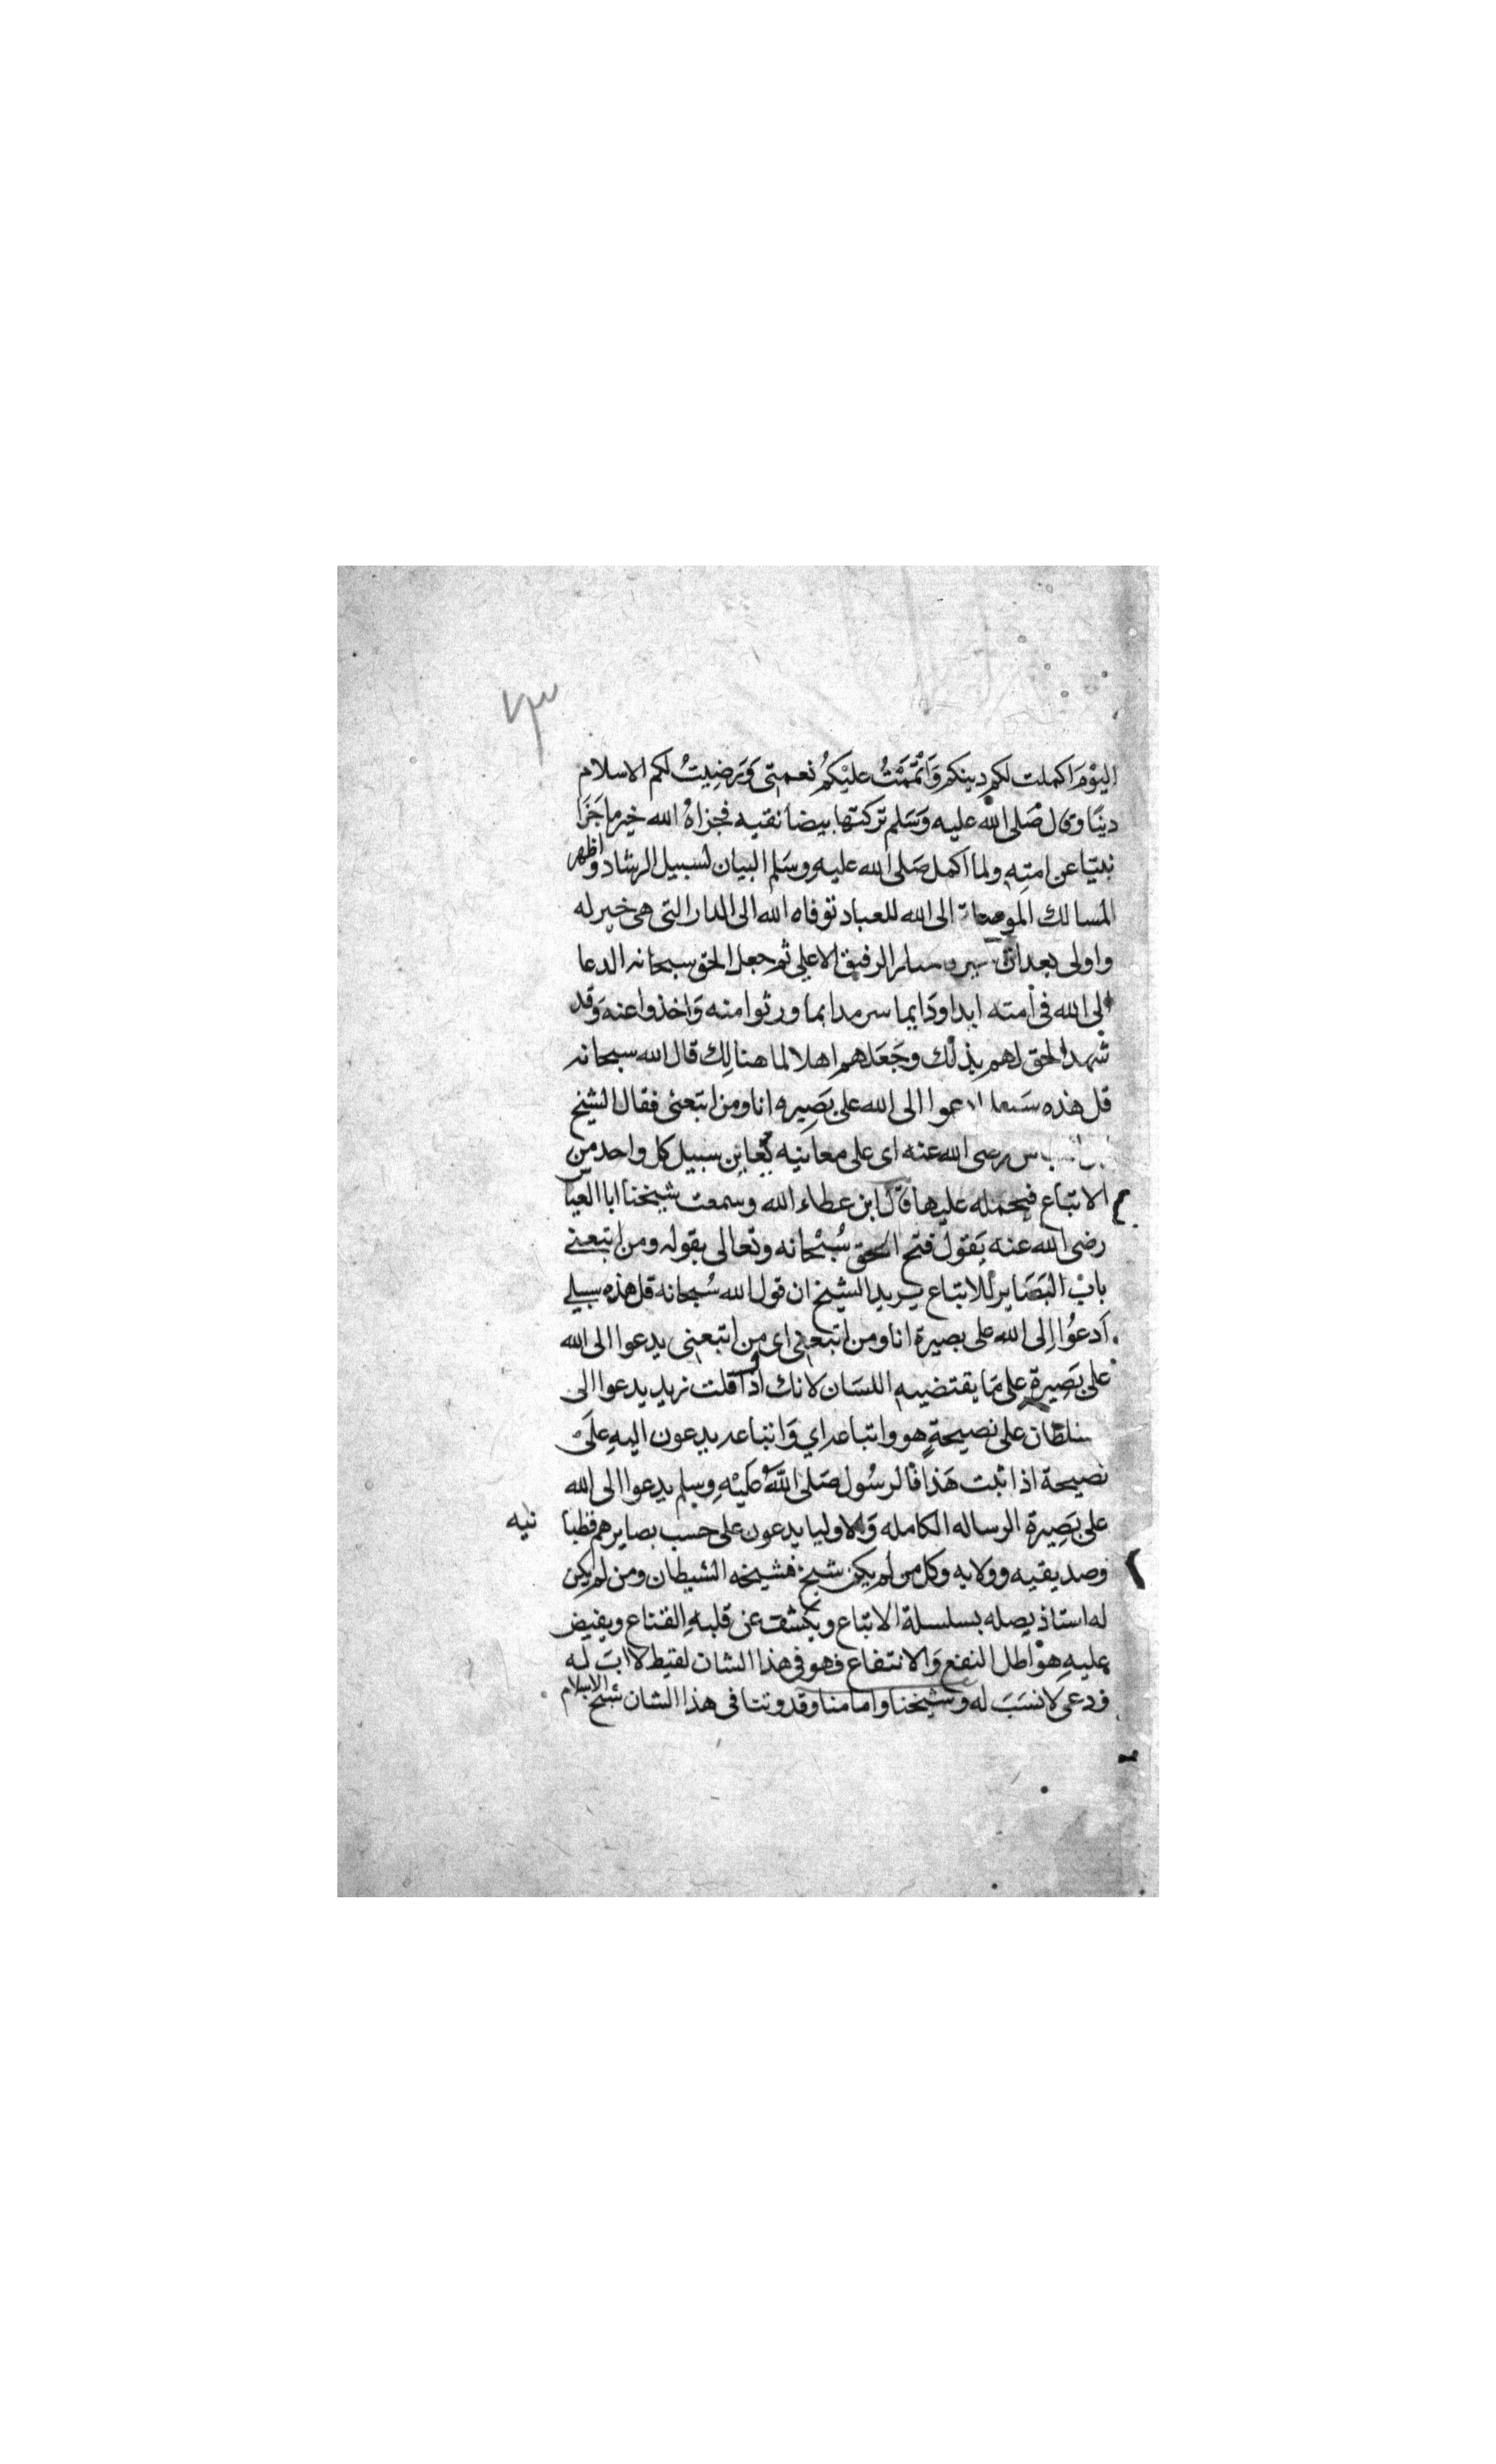 ٧٣
اليَوْمَ اكملت لكم دينكم وَاتْمَمْتُ عليْكُمْ نعمتى وَرَضِيتُ لكم الاسلام
دينًا وقال صَلى الله عليه وَسَلم تركتها بيضا نقيه فجزاهُ الله خير ما جَزَا
نبيّا عن امتِهِ ولما اكمل صَلى الله عليه وسَلم البيان لسبيل الرشاد واظهر
المسالك الى الله للعباد توفاه الله الى الدار التى هى خير له
واولى بعد ان الرفيق الاعلى ثم جعل الحق سبحانه الدعا
الى الله فى امته ابدا ودَايما سرمدا بما ورثوا منه وَاخذوا عنه وَقد
شهد الحق لهم بذلك وجَعَلهم اهلا لما هنالك قال الله سبحانه
قل هذه الى الله على بَصِيره انا ومن اتبعنى فقال الشيخ
رضى الله عنه اى على معاينه تعاين سبيل كل واحد من
الاتباع فيحمله عليها قال ابن عطاء الله وسمعت شيخنا ابا العباس
رضى الله عنه يَقول فتح الحق سُبْحانه وتعالى بقوله ومن اتبعنى
بابْ البَصَاير للاتباع يريد الشيخ ان قول الله سُبحانه قل هذه سبيلى
اَدعُوا الى الله على بصيرة انا ومن اتبعنى اى من اتبعنى يدعوا الى الله
على بَصِيرة على مَا يقتضيه اللسَان لانك اذا قلت زيد يدعوا الى
سلطان على نصيحةٍ هو واتباعه اي وَاتباعه يدعون اليهِ علَى
نصيحة اذا ثبت هَذا فالرسُول صَلى اللهُ عَليْهِ وسلم يدعوا الى الله
على بَصِيرة الرساله الكامله وَالاوليا يدعون على حسب بصايرهم قطبا نيه
وصديقيه وولايه وكل من لم يكن شيخ فشيخه الشيطان ومن لم يكن
له استاذ يصله بسلسلة الاتباع ويكشف عن قلبهِ القناع ويفيض
عليهِ هوْاطل النفع وَالانتفاع فهو فى هذا الشان لقيط لا ابَ له
ودعى لا نسَبَ له وشيخنا وامامنا وقدوتنا فى هذا الشان شيخ الاسلام